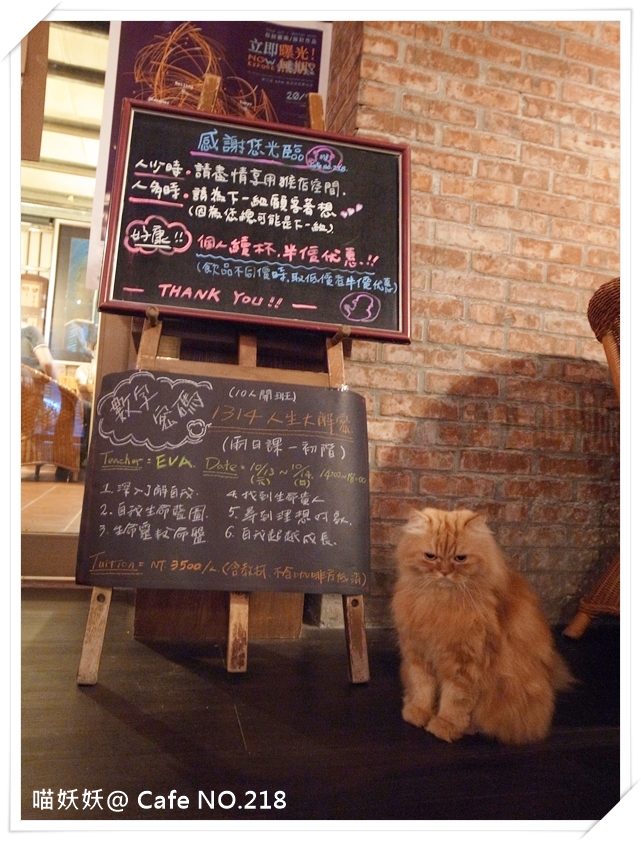 立即曝光!
NOW
20/
感謝您光臨
人少時,請盡情享用猴在空間.
人多時,請為下一組顧客著想
(因為您總可能是下一組)
好康!!
個人續杯,半價優惠!!
(飲品不同價時,取低價者半價優惠)
THANK YOU!!
數字密碼
(10人開班)
1314人生大解密
(兩日課－初階)
Teacher = EVA. Date = 10/13 ~ 10/14 14:00~18:00
(六) (日)
1.深入了解自我.
4.找到生命貴人
2.自我生命藍圖.
5.尋到理想對象.
3.生命靈數命盤
6.自我超越成長.
Tuition = NT 3500/人 (含教材,不含咖啡店低消)
喵妖妖@ Cafe NO.218